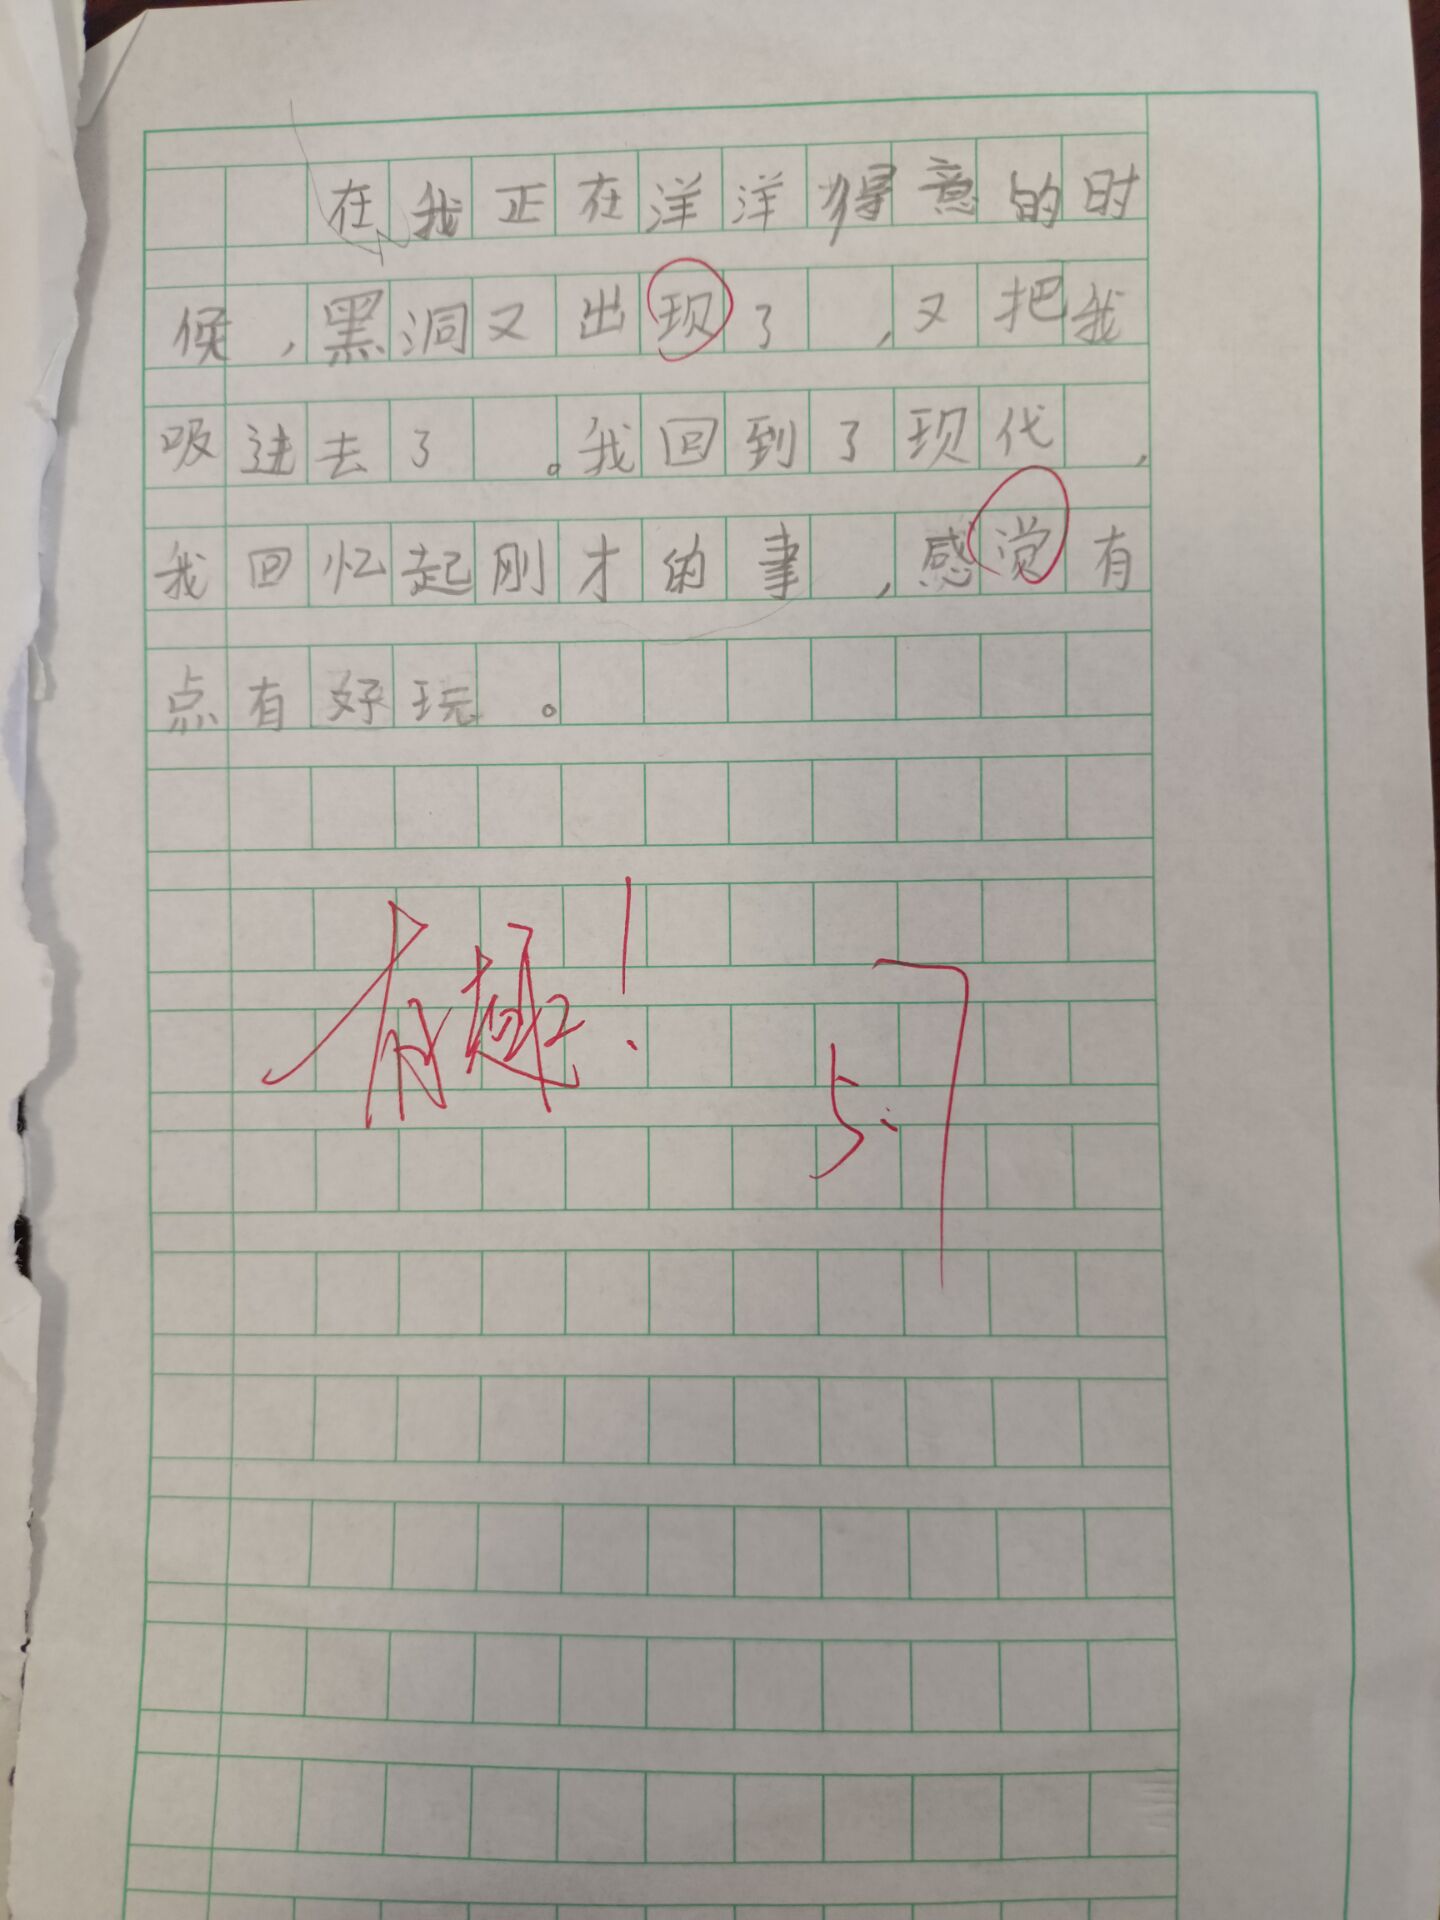 在我正在洋洋得意的时
候，黑洞又出现了，又把我
吸进去了。我回到了现代，
我回忆起刚才的事，感觉有
点有好玩。
有趣！
5.7